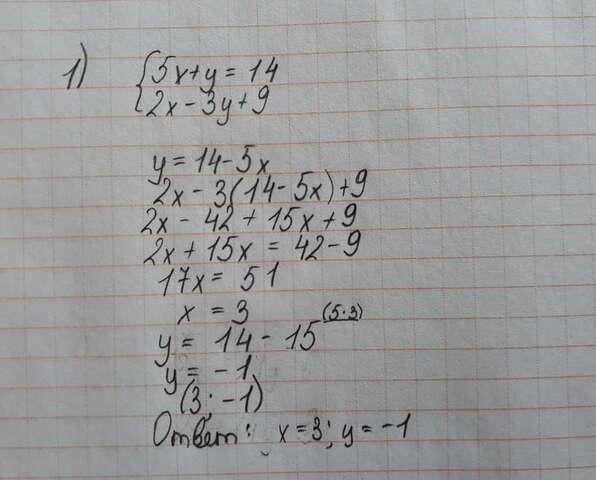 1) {5x+y=14
2x-3y+9
y=14-5x
2x-3(14-5x)+9
2x-42+15x+9
2x+15x=42-9
17x=51
x=3
y=14-15 (5·3)
y=-1
(3;-1)
Ответ: x=3; y=-1